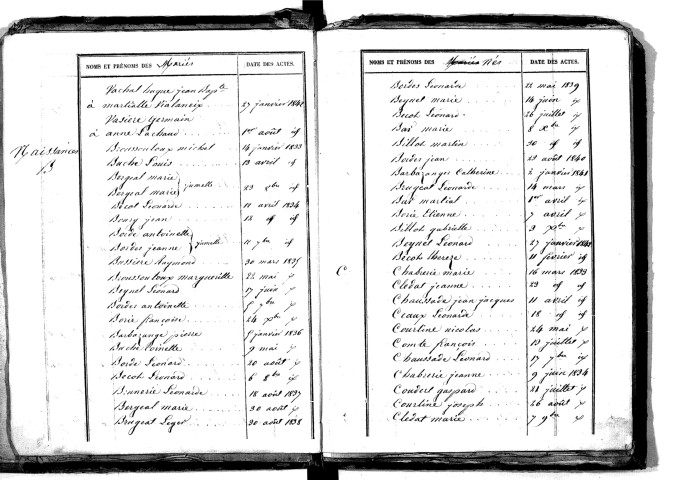 NOMS ET PRÉNOMS DES Mariés DATE DES ACTES.
Vachal hugue jean Bapte
à martialle Nalaneix 27 janvier 1842
Vasiere Germain
à anne Lachaud 1er août id
Naissances
B
Broussouloux michel 14 janvier 1833
Buche Louis 13 avril id
Bergeal marie
Bergeal marie } jumelle 23 xbre id
Bocot Léonarde 11 avril 1834
Boury jean 18 id id
Borde antoinette
Bordes jeanne } jumelle 11 7bre id
Bossiere Raymond 30 mars 1835
Broussouloux marguerite 22 mai
Beynel Léonard 17 juin
Bordes antoinette 7bre
Borie françoise 24 xbre
Barbazange pierre janvier 1836
Buche Toinette 9 mai
Borde Léonard 20 août
Bocot Léonard 6 8bre
Brunerie Léonarde 18 août 1837
Bergeal marie 30 août
Brugeat Leger 30 août 1838
NOMS ET PRÉNOMS DES Nés DATE DES ACTES.
Bordes Léonarde 22 mai 1839
Beynet marie 14 juin
Bocot Léonard 26 juillet
Bas marie 8 xbre
Billot martin 30 id
Bordes jean 23 août 1840
Barbazanges Catherine 2 janvier 1841
Brugeat Léonarde 14 mars
Bas martial 1er avril
Borie Etienne 7 avril
Billot gabrielle 3 xbre
Beynet Léonard 27 janvier 1842
Bocot therese 11 février id
C
Chabrerie marie 16 mars 1833
Cledat jeanne 23 id id
Chaussade jean jacques 11 avril id
Ceaux Léonarde 18 id id
Courtine nicolas 24 mai
Comte françois 13 juillet
Chaussade Léonard 17 7bre
Chabrerie jeanne 9 juin 1834
Coudert gaspard 21 juillet
Courtine joseph 26 août
Cledat marie 7 9bre